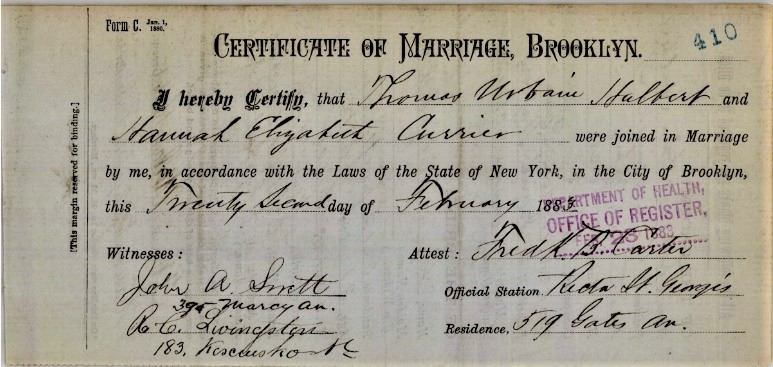 Form C. Jan. 1, 1880.
410
CERTIFICATE OF MARRIAGE, BROOKLYN.
I hereby Certify, that Thomas Urbain Hulbert and
Hannah Elizabeth Currier were joined in Marriage
by me, in accordance with the Laws of the State of New York, in the City of Brooklyn,
this Twenty Second day of February 1883
DEPARTMENT OF HEALTH,
OFFICE OF REGISTER,
FEB 23 1883
Witnesses :
Attest : Fredk B. Carter
John A.
Marcy av.
Official Station, Rector St. George's
R. C. Livingston
183, Kosciusko
Residence, 519 Gates Av.
[This margin reserved for binding.]